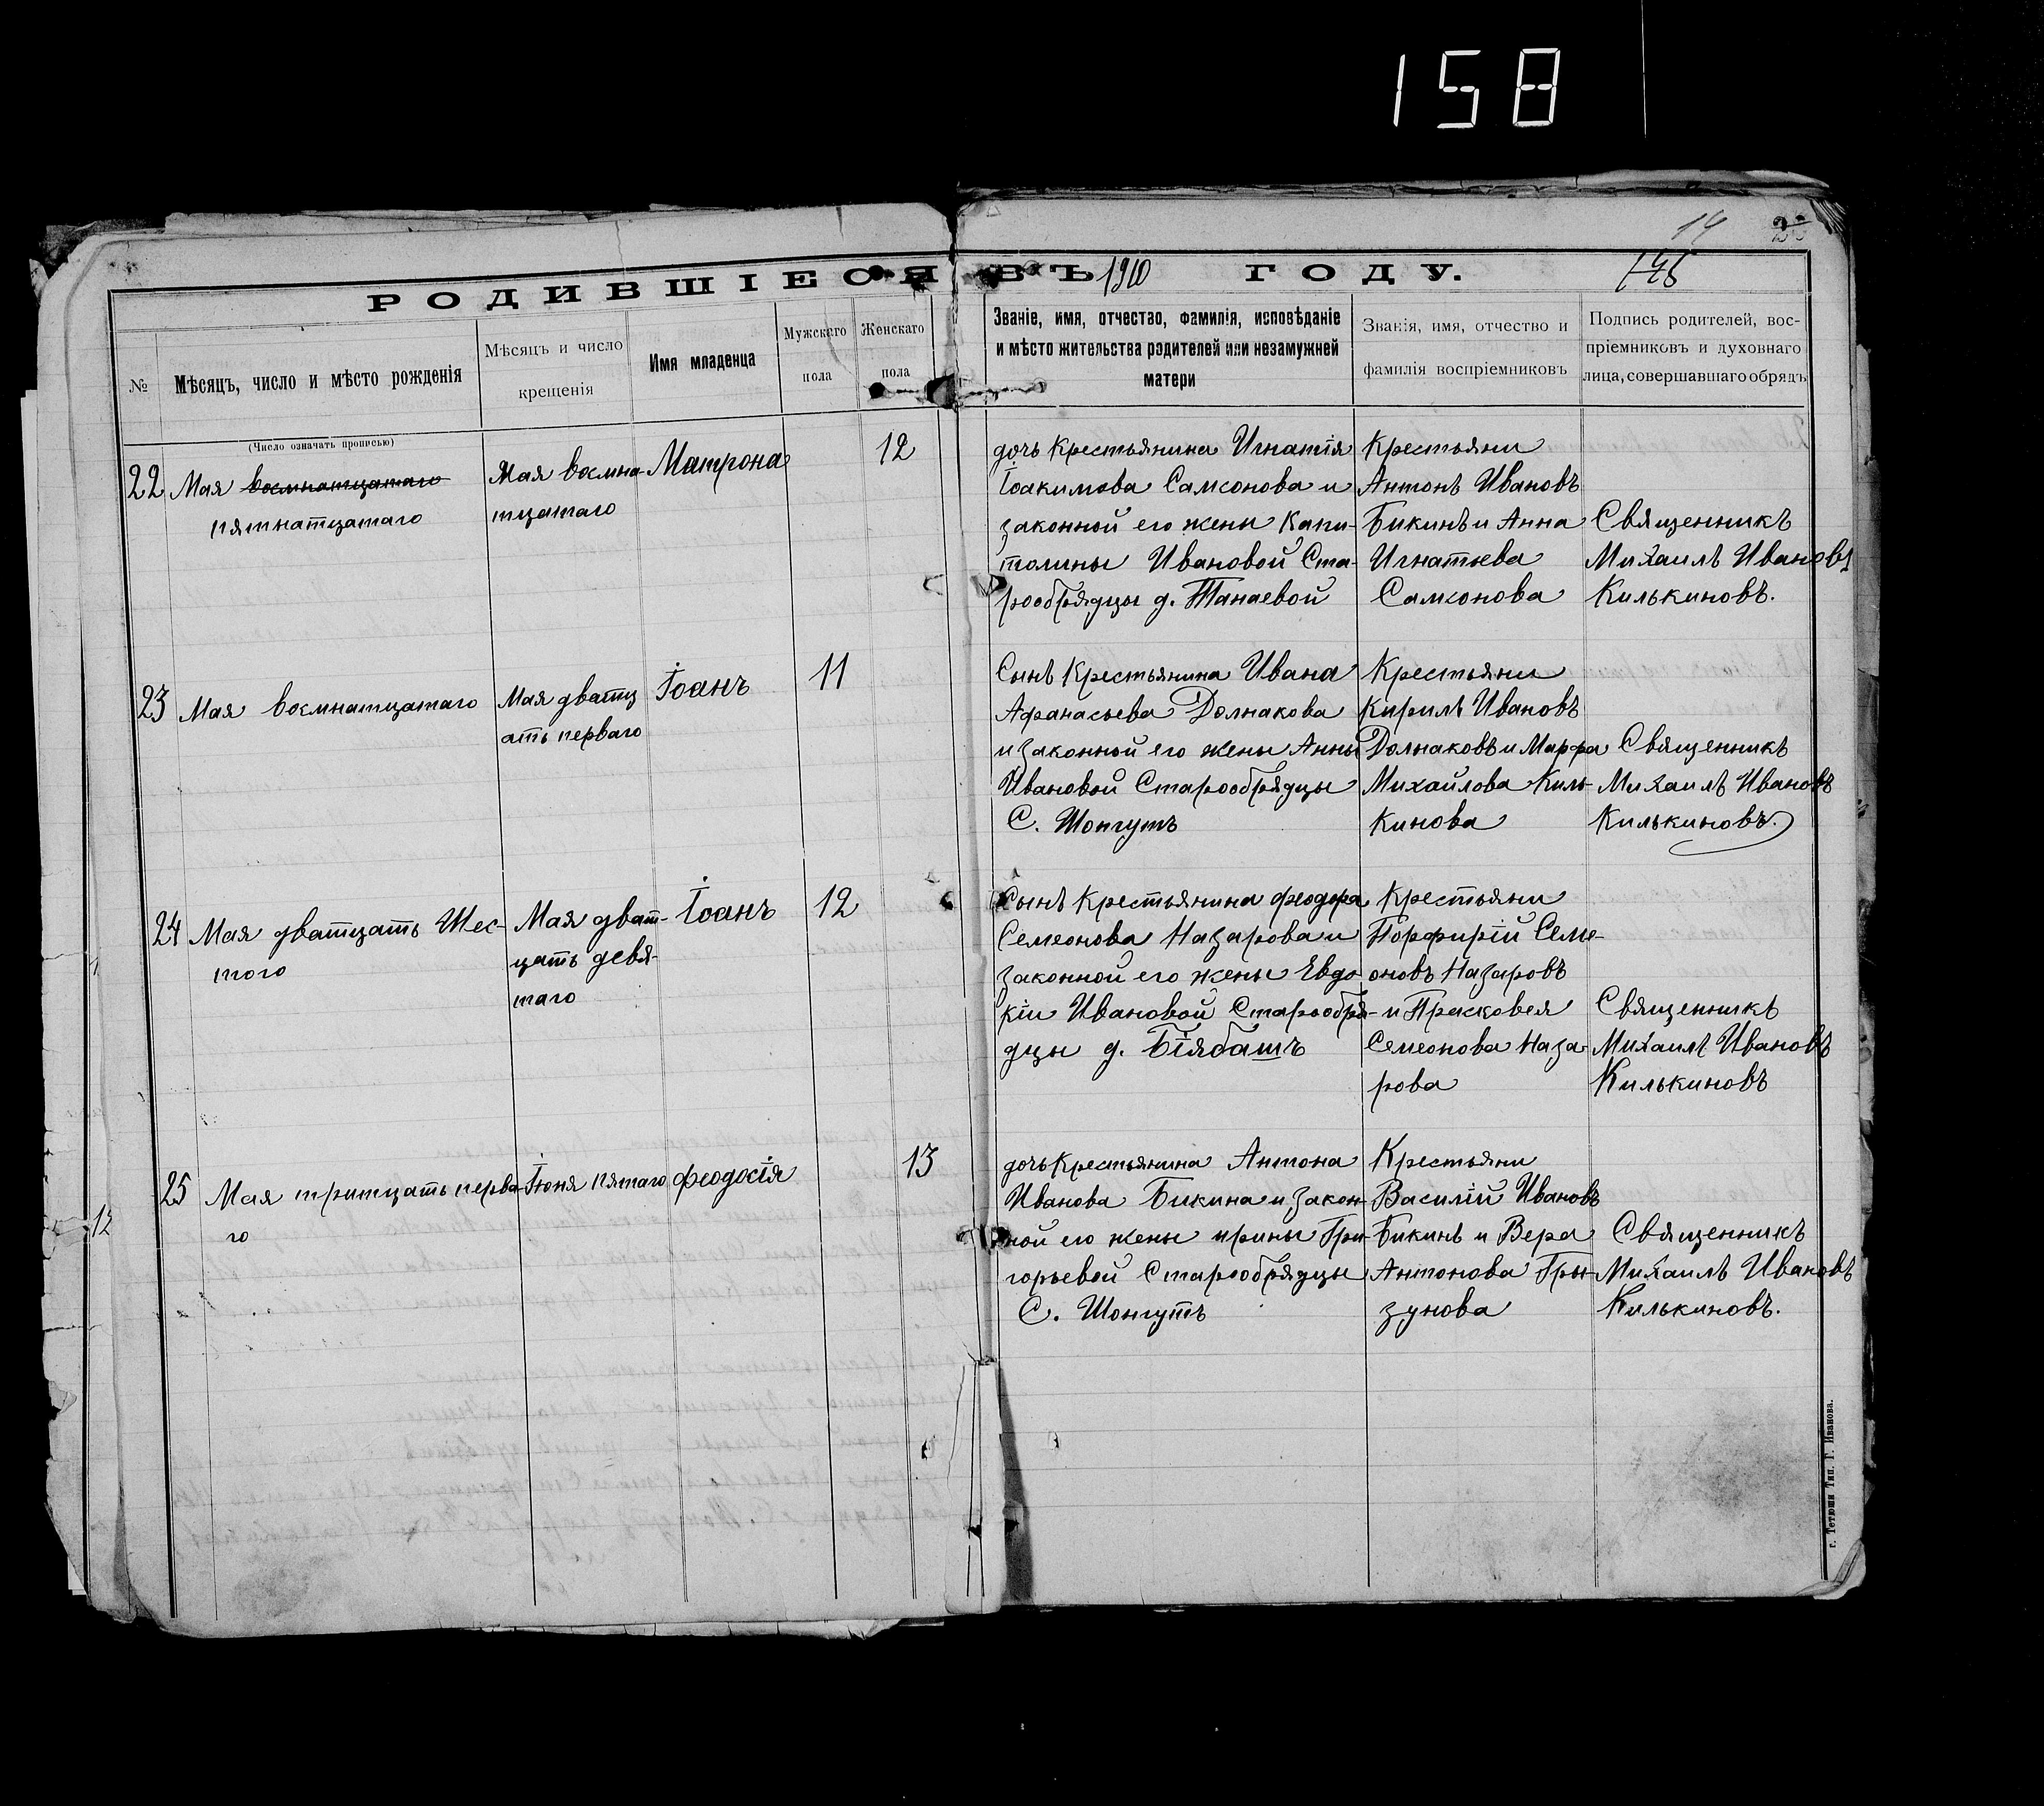 158
14
146
РОДИВШІЕСЯ ВЪ 1910 ГОДУ.
№
Мѣсяцъ, число и мѣсто рожденія
Мѣсяцъ и число
крещенія
Имя младенца
Мужскаго
пола
Женскаго
пола
Званіе, имя, отчество, фамилія, исповѣданіе
и мѣсто жительства родителей или незамужней
матери
Званія, имя, отчество и
фамилія воспріемниковъ
Подпись родителей, вос-
пріемниковъ и духовнаго
лица, совершавшаго обрядъ
(Число означать прописью)
22
Мая восмнатцатаго
пятнатцатаго
Мая восмна-
тцатаго
Матрона
12
дочь Крестьянина Игнатія
Іоакимова Самсонова и
законной его жены Капи-
толины Ивановой Ста-
рообрядцы д. Танаевой
Крестьяни
Антонъ Ивановъ
Бикинъ и Анна
Игнатьева
Самсонова
Священникъ
Михаилъ Ивановъ
Килькиновъ.
23
Мая восмнатцатаго
Мая дватц
ать перваго
Іоанъ
11
Сынъ Крестьянина Ивана
Афанасьева Долнакова
и законной его жены Анны
Ивановой Старообрядцы
С. Шонгутъ
Крестьяни
Кирилъ Ивановъ
Долнаковъ и Марфа
Михайлова Киль-
кинова
Священникъ
Михаилъ Ивановъ
Килькиновъ.
24
Мая дватцать Шес-
того
Мая дват-
цать девя-
таго
Іоанъ
12
Сынъ Крестьянина Феодора
Семеонова Назарова и
законной его жены Евдо
кіи Ивановой Старообря-
дцы д. Біябашъ
Крестьяни
Порфирій Семе-
оновъ Назаровъ
и Прасковея
Семеонова Наза-
рова
Священникъ
Михаилъ Ивановъ
Килькиновъ
25
Мая тритцать перва-
го
Іюня пятаго
Феодосія
13
дочь Крестьянина Антона
Иванова Бикина и закон-
ной его жены ирины Гри-
горьевой Старообрядцы
С. Шонгутъ
Крестьяни
Василій Ивановъ
Бикинъ и Вера
Антонова Гры-
зунова
Священникъ
Михаилъ Ивановъ
Килькиновъ.
12
г. Тетюши Тип. Г. Иванова.